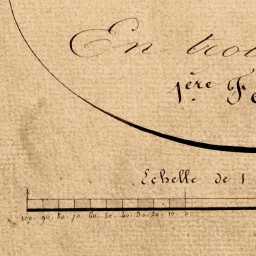 En troi
1ère Fe
Echelle de 1
100 90 80 70 60 50 40 30 20 10 0